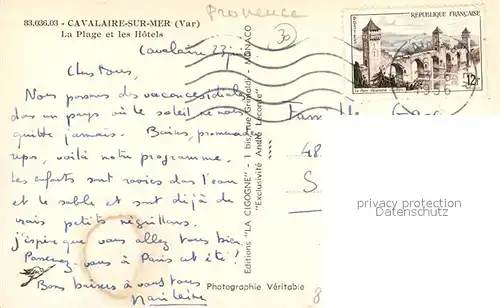 Provence
83.036.03 - CAVALAIRE-SUR-MER (Var)
La Plage et les Hôtels
30
Cavalaire 23 juin
Chers tous,
Nous passons des vacances idéales
dans un pays où le soleil ne nous
quitte jamais. Bains, promenades
repos, voilà notre programme.
Les enfants sont ravies dans l'eau
et le sable et sont déjà de
vrais petits négrillons.
J'espère que vous allez tous bien.
Passerez-vous à Paris cet été ?
Bons baisers à vous tous
Editions "LA CIGOGNE" - 1 bis, rue Grimaldi - MONACO
"Exclusivité André Leconte"
RÉPUBLIQUE FRANÇAISE
12F
1956
48
S
privacy protection
Datenschutz
Photographie Véritable
8